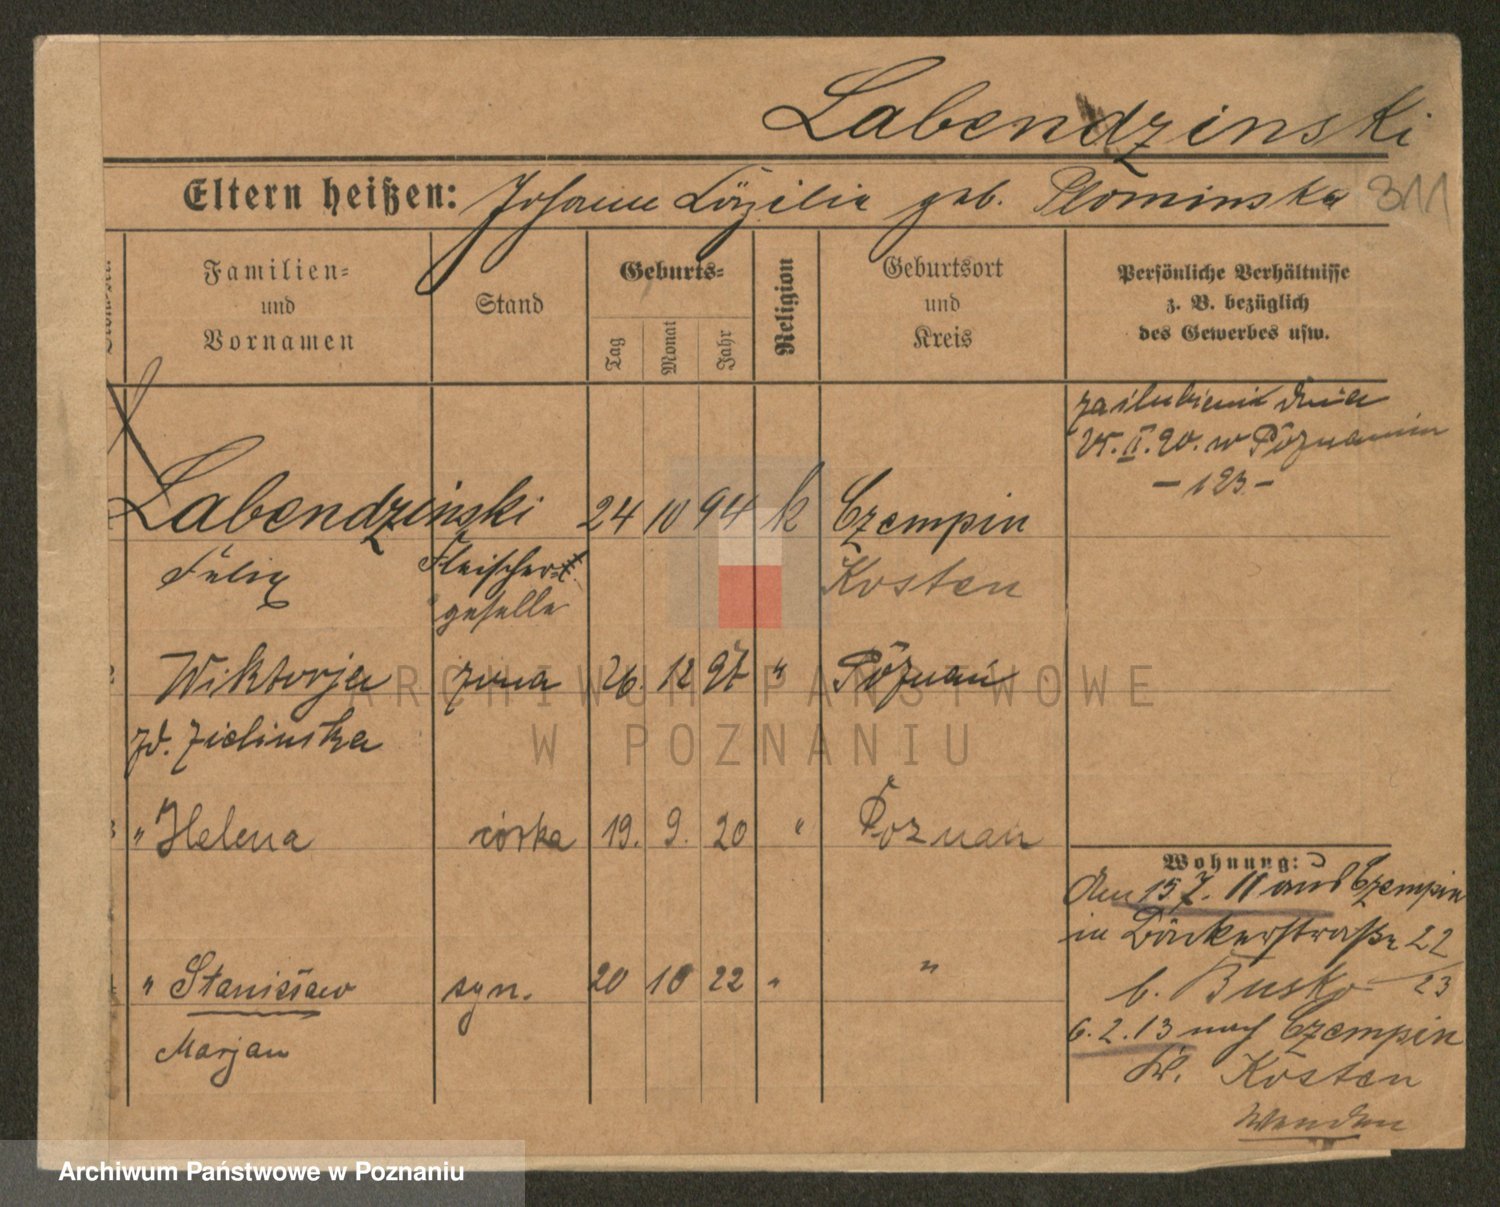 Labendzinski
Eltern heißen: Johann Cäzilia geb. Plominska 311
Familien= und Vornamen
Stand
Geburts=
Tag
Monat
Jahr
Religion
Geburtsort und Kreis
Persönliche Verhältnisse z. B. bezüglich des Gewerbes usw.
zaślubieni dnia
25. II. 20. w Poznaniu
- 123 -
Labendzinski 24 10 94 k Czempin
Felix Fleischer= Kosten
geselle
2 Wiktorja żona 26. 12 97 " Poznań
zd. Zielinska
3 " Helena córka 19. 9. 20 " Poznań
" Stanisław syn. 20 10 22 " "
Marjan
Wohnung:
den 15 7. 11 aus Czempin
in Bäckerstraße 22
b. Busko 23
6. 2. 13 nach Czempin
Kr. Kosten
Wenden
ARCHIWUM PAŃSTWOWE
W POZNANIU
Archiwum Państwowe w Poznaniu